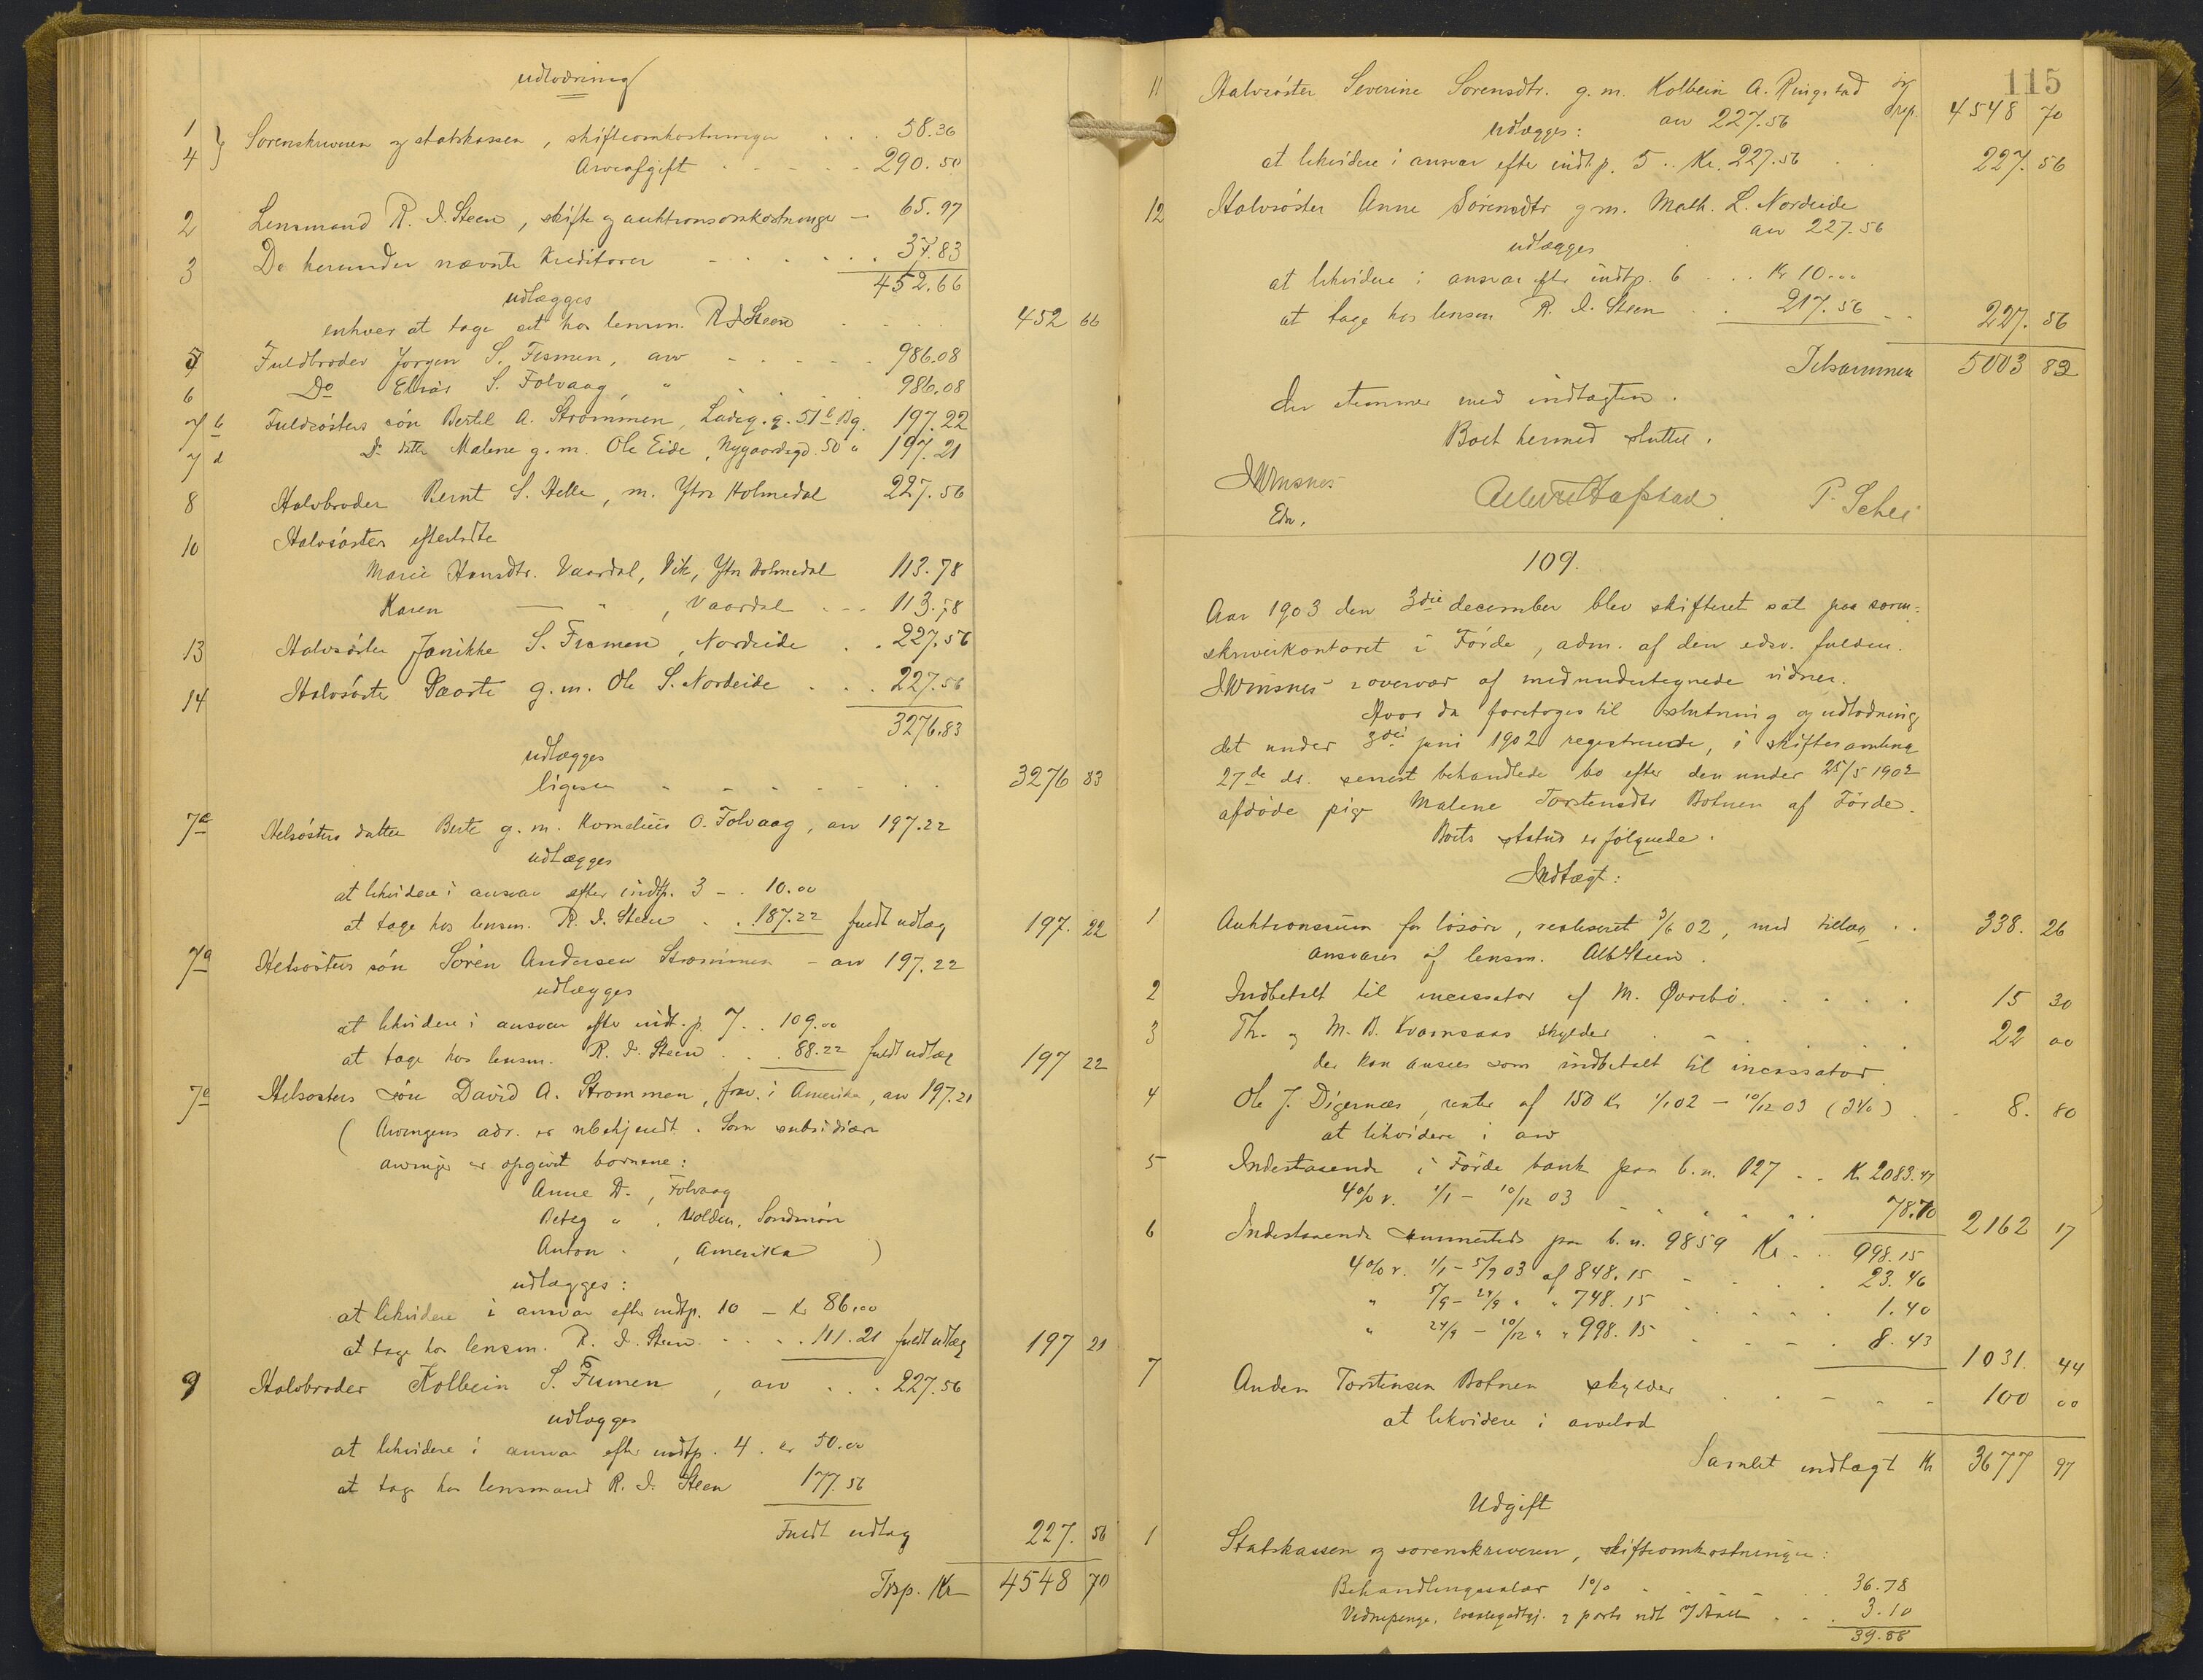 udlodning
1
4 } Sorenskriveren og statskassen, skifteomkostninger . . . 58.36
Arveafgift . . . . . 290.50
2 Lensmand R. I. Steen, skifte og auktionsomkostninger - 65.97
3 De herunder nævnte kreditorer . . . . . . 37.83
452.66
udlægges
enhver at tage sit hos lensm. R I Steen . . . . 452 66
5 Fuldbroder Jørgen S. Fismen, arv . . . . . 986.08
6 Do Elias S. Folvaag, " . . . 986.08
7 b Fuldsøsters søn Bertil A. Strømmen, Ladeg. g. 51 b Bg. 197.22
7 d Do datter Malene g. m. Ole Eide, Nygaardsgd. 50 " 197.21
8 Halvbroder Bernt S. Helle, m. Ytre Holmedal 227.56
10 Halvsøsters efterladte
Marie Hansdtr. Vaardal, Vik, Ytre Holmedal 113.78
Karen — " , Vaardal . . . 113.78
13 Halvsøster Janikke S. Fismen, Nordeide . . 227.56
14 Halvsøster g. m. Ole S. Nordeide . . . 227.56
3276.83
udlægges
ligesaa . . . . . . . . 3276 83
7 a Helsøsters datter Berte g. m. Kornelius O. Folvaag, arv 197.22
udlægges
at likvidere i ansvar efter indtp. 3 - . 10.00
at tage hos lensm. R. I. Steen . . 187.22 fuldt udlæg 197. 22
7 Helsøsters søn Søren Andersen Strømmen - arv 197.22
udlægges
at likvidere i ansvar efter indt. p. 7 . . 109.00
at tage hos lensm. R. I. Steen . . . 88.22 fuldt udlæg 197 22
7 Helsøsters søn David A. Strømmen, frav. i Amerika, arv 197.21
( Arvingens adr. er ubekjendt. Som subsidiære
arvinger er opgivet børnene:
Anne D., Folvaag
Betsy " , Volden, Søndmøre
Anton " , Amerika )
udlægges:
at likvidere i ansvar efter indtp. 10 - Kr 86.00
at tage hos lensm. R. I. Steen . . . . 111.21 fuldt udlæg 197 21
9 Halvbroder Kolbein S. Fismen, arv . . . 227.56
udlægges
at likvidere i ansvar efter indtp. 4 . kr 50.00
at tage hos lensmand R. I. Steen 177.56
Fuldt udlæg 227. 56
Trsp. Kr 4548 70
115
Trsp. 4548 70
11 Halvsøster Severine Sørensdtr. g. m. Kolbein A. Ringstad
arv 227.56
udlægges:
at likvidere i ansvar efter indt. p. 5 . . Kr. 227.56 . . 227. 56
12 Halvsøster Anne Sørensdtr g. m. Math. L. Nordeide
arv 227.56
udlægges
at likvidere i ansvar efter indtp. 6 . . . Kr 10.00
at tage hos lensm R. I. Steen . . 217.56 . . 227. 56
Tilsammen 5003 82
der stemmer med indtægten.
Boet hermed sluttet.
Edv. P. Schei
109.
Aar 1903 den 3die december blev skifteret sat paa soren=
skriverkontoret i Førde, adm. af den edsv. fuldm.
i overvær af medundertegnede vidner.
Hvor da foretoges til slutning og udlodning
det under 3die juni 1902 registrerede, i skiftesamling
27de ds. senest behandlede bo efter den under 25/5 1902
afdøde pige Malene Torstensdtr Botnen af Førde.
Boets status er følgende.
Indtægt:
1 Auktionssum for løsøre, realiseret 3/6 02, med tillæg . . 338. 26
ansvares af lensm. Alb Steen.
2 Indbetalt til incassator af M. Øvrebø. . . . . . 15 30
3 Th. og M. B. Kvamsaas skylder . . . . . . 22 00
der kan ansees som indbetalt til incassator.
4 Ole J. Digernæs, rente af 150 Kr 1/1 02 - 10/12 03 (3%) . . 8. 80
at likvidere i arv
5 Indestaaende i Førde bank paa b. n. 127 . . Kr 2083.47
4% r. 1/1 - 10/12 03 . . . . . . 78.70 2162 17
6 Indestaaende sammesteds paa b. n. 9859 Kr. . . 998.15
4% r. 1/1 - 5/9 03 af 848.15 . . . . 23.46
" 5/9 - 24/9 " " 748.15 . . . . . 1.40
" 24/9 - 10/12 " " 998.15 . . . . 8.43 1031. 44
7 Anders Torstensen Botnen skylder . . . . . 100 00
at likvidere i arvelod
Samlet indtægt Kr 3677 97
Udgift
1 Statskassen og sorenskriveren, skifteomkostninger:
Behandlingssalær 1% . . . . . . 36.78
Vidnepenge, . . . 3.10
39.88